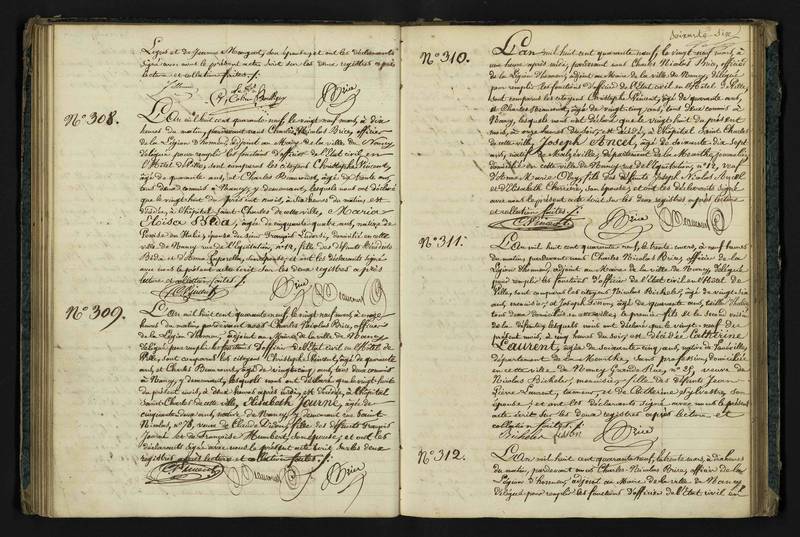 Légiés et de Jeanne Mangeot, son épouse; et ont les déclarants
signé avec nous le présent acte écrit sur les deux registres après
lecture et collation faites.
Brice
N.º 308.
L'an mil huit cent quarante neuf, le vingt neuf mars, à dix
heures du matin, pardevant nous Charles Nicolas Brice, officier
de la Légion d'honneur, adjoint au Maire de la ville de Nancy
délégué pour remplir les fonctions d'officier de l'État civil en
l'Hôtel de Ville, sont comparus les citoyens Christophe Vincent,
âgé de quarante ans, et Charles Beaumont, âgé de
tous deux commis à Nancy, y demeurant, lesquels nous ont déclaré
que le vingt huit du présent mois, à six heures du matin, est
décédée, à l'hôpital Saint Charles de cette ville, Maria
Eloïsa Béda, âgée de cinquante quatre ans, native de
épouse de Jean François domiciliée en cette
ville de Nancy rue de l'Equitation, n.º 12, fille des défunts
Béda et d'Anna son épouse; et ont les déclarants signé
avec nous le présent acte écrit sur les deux registres après
lecture et collation faites.
C. Vincent Brice Beaumont
N.º 309.
L'an mil huit cent quarante neuf, le vingt neuf mars, à onze
heures du matin, pardevant nous Charles Nicolas Brice, officier
de la Légion d'honneur, adjoint au Maire de la ville de Nancy
délégué pour remplir les fonctions d'officier de l'État civil en l'Hôtel de
Ville, sont comparus les citoyens Christophe Vincent, âgé de quarante
ans, et Charles Beaumont, âgé de vingt cinq ans, tous deux commis
à Nancy, y demeurant, lesquels nous ont déclaré que le vingt huit
du présent mois, à deux heures après midi, est décédée, à l'hôpital
Saint Charles de cette ville, Elisabeth Jeanné, âgée de
cinquante deux ans, native de Nancy, y demeurant rue Saint
Nicolas, n.º 78, veuve de Claude Didon, fille des défunts François
Jeanné et de Françoise Humbert, son épouse; et ont les
déclarants signé avec nous le présent acte écrit sur les deux
registres après lecture et collation faites.
C. Vincent Beaumont Brice
soixante Six
N.º 310.
L'an mil huit cent quarante neuf, le vingt neuf mars, à
une heure après midi, pardevant nous Charles Nicolas Brice, officier
de la Légion d'honneur, adjoint au Maire de la ville de Nancy, délégué
pour remplir les fonctions d'officier de l'État civil en l'Hôtel de Ville,
sont comparus les citoyens Christophe Vincent, âgé de quarante ans,
et Charles Beaumont, âgé de vingt cinq ans, tous deux commis à
Nancy, lesquels nous ont déclaré que le vingt huit du présent
mois, à onze heures du soir, est décédé, à l'hôpital Saint Charles
de cette ville, Joseph Ancel, âgé de soixante dix sept
ans, natif de Malzéville, département de la Meurthe,
domicilié en cette ville de Nancy rue de l'Equitation, n.º 12, veuf
d'Anne Marie Clay, fils des défunts Joseph Nicolas Ancel
et d'Elisabeth son épouse; et ont les déclarants signé
avec nous le présent acte écrit sur les deux registres après lecture
et collation faites.
C. Vincent Brice Beaumont
N.º 311.
L'an mil huit cent quarante neuf, le trente mars, à neuf heures
du matin, pardevant nous Charles Nicolas Brice, officier de la
Légion d'honneur, adjoint au Maire de la ville de Nancy, délégué
pour remplir les fonctions d'officier de l'État civil en l'Hôtel de
Ville, sont comparus les citoyens Nicolas Bicheler, âgé de vingt six
ans, menuisier, et Joseph âgé de quarante ans,
tous deux domiciliés en cette ville, le premier fils et le second voisin
de la défunte, lesquels nous ont déclaré que le vingt neuf du
présent mois, à cinq heures du soir, est décédée Catherine
Laurent, âgée de soixante cinq ans, native de
département de la Meurthe, sans profession, domiciliée
en cette ville de Nancy, Grande Rue, n.º 35, veuve de
Nicolas Bicheler, menuisier, fille des défunts Jean
Pierre Laurent, et de Catherine son
épouse; et ont les déclarants signé, avec nous le présent
acte écrit sur les deux registres après lecture et
collation faites.
Bicheler Brice
N.º 312.
L'an mil huit cent quarante neuf, le trente mars, à dix heures
du matin, pardevant nous Charles Nicolas Brice, officier de la
Légion d'honneur, adjoint au Maire de la ville de Nancy
délégué pour remplir les fonctions d'officier de l'État civil en